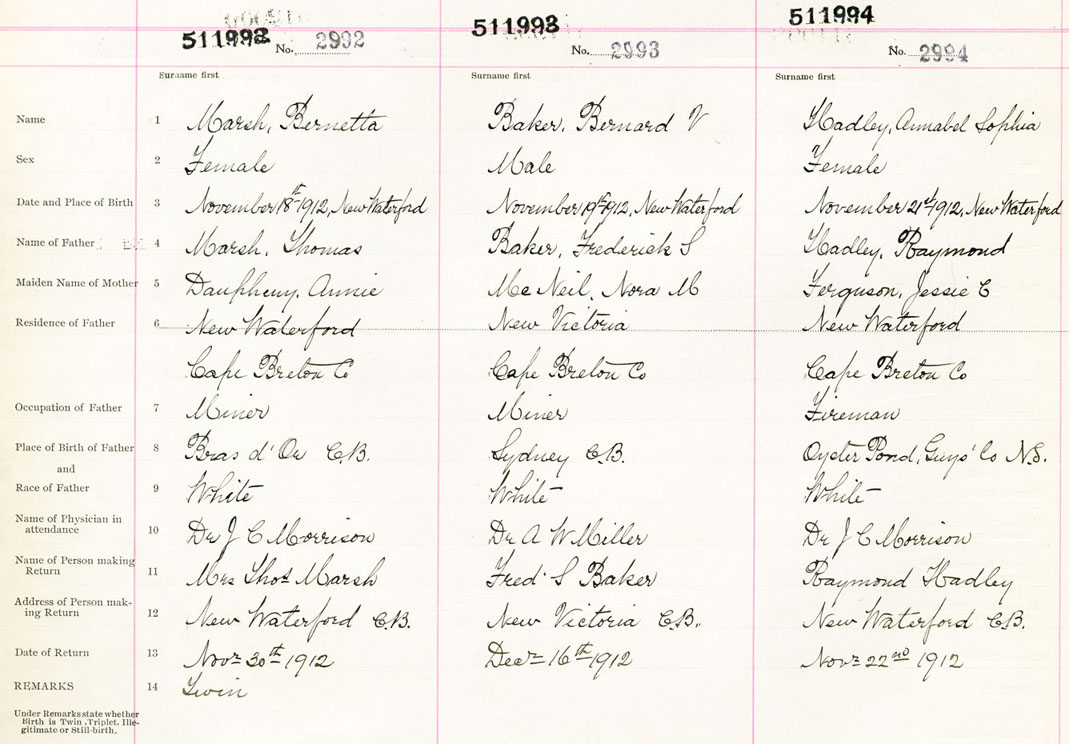 511992 No. 2992 511993 No. 2993 511994 No. 2994
Surname first Surname first Surname first
Name 1 Marsh, Bernetta Baker, Bernard V Hadley, Annabel Sophia
Sex 2 Female Male Female
Date and Place of Birth 3 November 18th 1912, New Waterford November 19th 1912, New Waterford November 21st 1912, New Waterford
Name of Father 4 Marsh, Thomas Baker, Frederick S Hadley, Raymond
Maiden Name of Mother 5 Daupheny, Annie Mc Neil, Nora M Ferguson, Jessie C
Residence of Father 6 New Waterford New Victoria New Waterford
Cape Breton Co Cape Breton Co Cape Breton Co
Occupation of Father 7 Miner Miner Fireman
Place of Birth of Father 8 Bras d'Or C.B. Sydney C.B. Oyster Pond, Guys' Co N.S.
and
Race of Father 9 White White White
Name of Physician in
attendance 10 Dr J C Morrison Dr A W Miller Dr J C Morrison
Name of Person making
Return 11 Mrs Thos Marsh Fred S Baker Raymond Hadley
Address of Person mak-
ing Return 12 New Waterford C.B. New Victoria C.B. New Waterford C.B.
Date of Return 13 Novr 30th 1912 Decr 16th 1912 Novr 22nd 1912
REMARKS 14 Twin
Under Remarks state whether
Birth is Twin, Triplet, Ille-
gitimate or Still-birth.